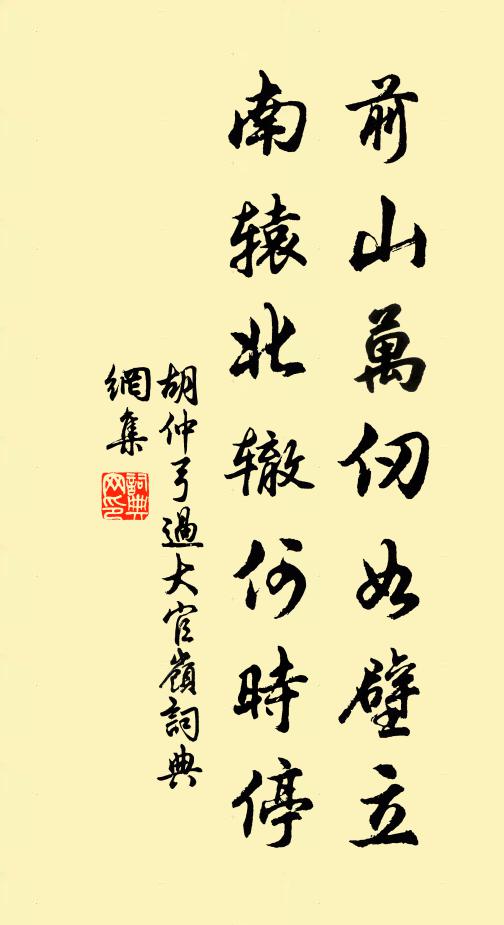 前山萬仞如壁立
南辕北辙何時停
胡仲弓過大官嶺詞典
網集
詞典网印